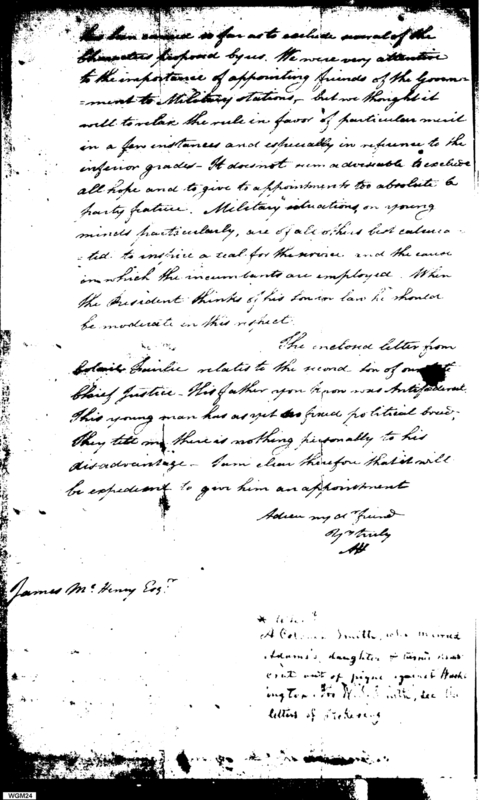 has been carried so far as to exclude several of the
characters proposed by us. We were very attentive
to the importance of appointing friends of the Govern-
-ment to Military stations, but we thought it
well to relax the rule in favor of particular merit
in a few instances and especially in reference to the
inferior grades - It does not seem advisable to exclude
all hope and to give to appointments too absolute a
party feature. Military situations, on young
minds particularly, are of all others best calcula-
-ted to inspire a zeal for the service and the cause
in which the incumbents are employed. When
the President thinks of his son in law he should
be moderate in this respect.
The inclosed letter from
Fairlie relates to the second son of our
Chief Justice - His father you know was Antifoederal
This young man has as yet no fixed political creed;
they tell me there is nothing personally to his
disadvantage - I am clear therefore that it will
be expedient to give him an appointment
Adieu my dr friend
Yrs truly
AH
James Mc Henry Esqr
*
A Colonel Smith, who married
Adams's daughter & turned
out of pique against Wash-
ington. For Wm Smith, see the
letters of Pickering
WGM24